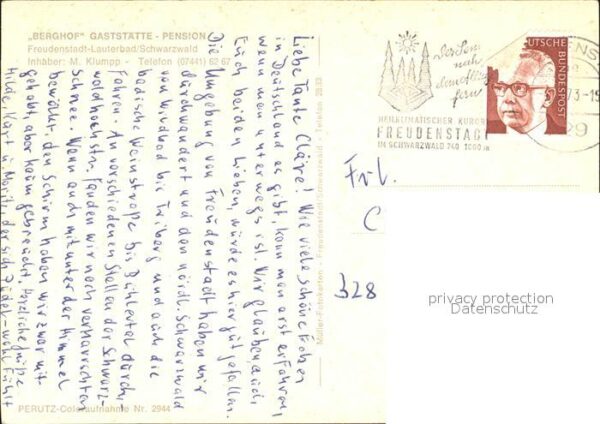 "BERGHOF" GASTSTÄTTE - PENSION
Freudenstadt-Lauterbad/Schwarzwald
Inhaber: M. Klumpp - Telefon (07441) 62 67
Liebe Tante Cläre! Wie viele schöne Ecken
in Deutschland es gibt, kann man erst erfahren,
wenn man unterwegs ist. Wir glauben auch,
Euch beiden Lieben, würde es hier gut gefallen.
Die Umgebung von Freudenstadt haben wir
durchwandert und den nördl. Schwarzwald
von Wildbad bis Triberg und auch die
badische Weinstraße bis Bühlertal durch,
fahren. An verschiedenen Stellen der Schwarz-
waldhochstr. fanden wir noch verharrschten
Schnee. Wenn auch mitunter der Himmel
bewölkt, den Schirm haben wir zwar mit-
gehabt, aber kaum gebraucht. Herzliche Grüße
Hilde, Kurt u. Moritz, der sich pudel-wohl fühlt
PERUTZ-Coloraufnahme Nr. 2944
Müller-Fabrikarten · Freudenstadt/Schwarzwald · Telefon
nach
dem Alltag
fern
HEILKLIMATISCHER KURORT
FREUDENSTADT
IM SCHWARZWALD 740 1000 m
DEUTSCHE BUNDESPOST
Frl.
C
328
privacy protection
Datenschutz